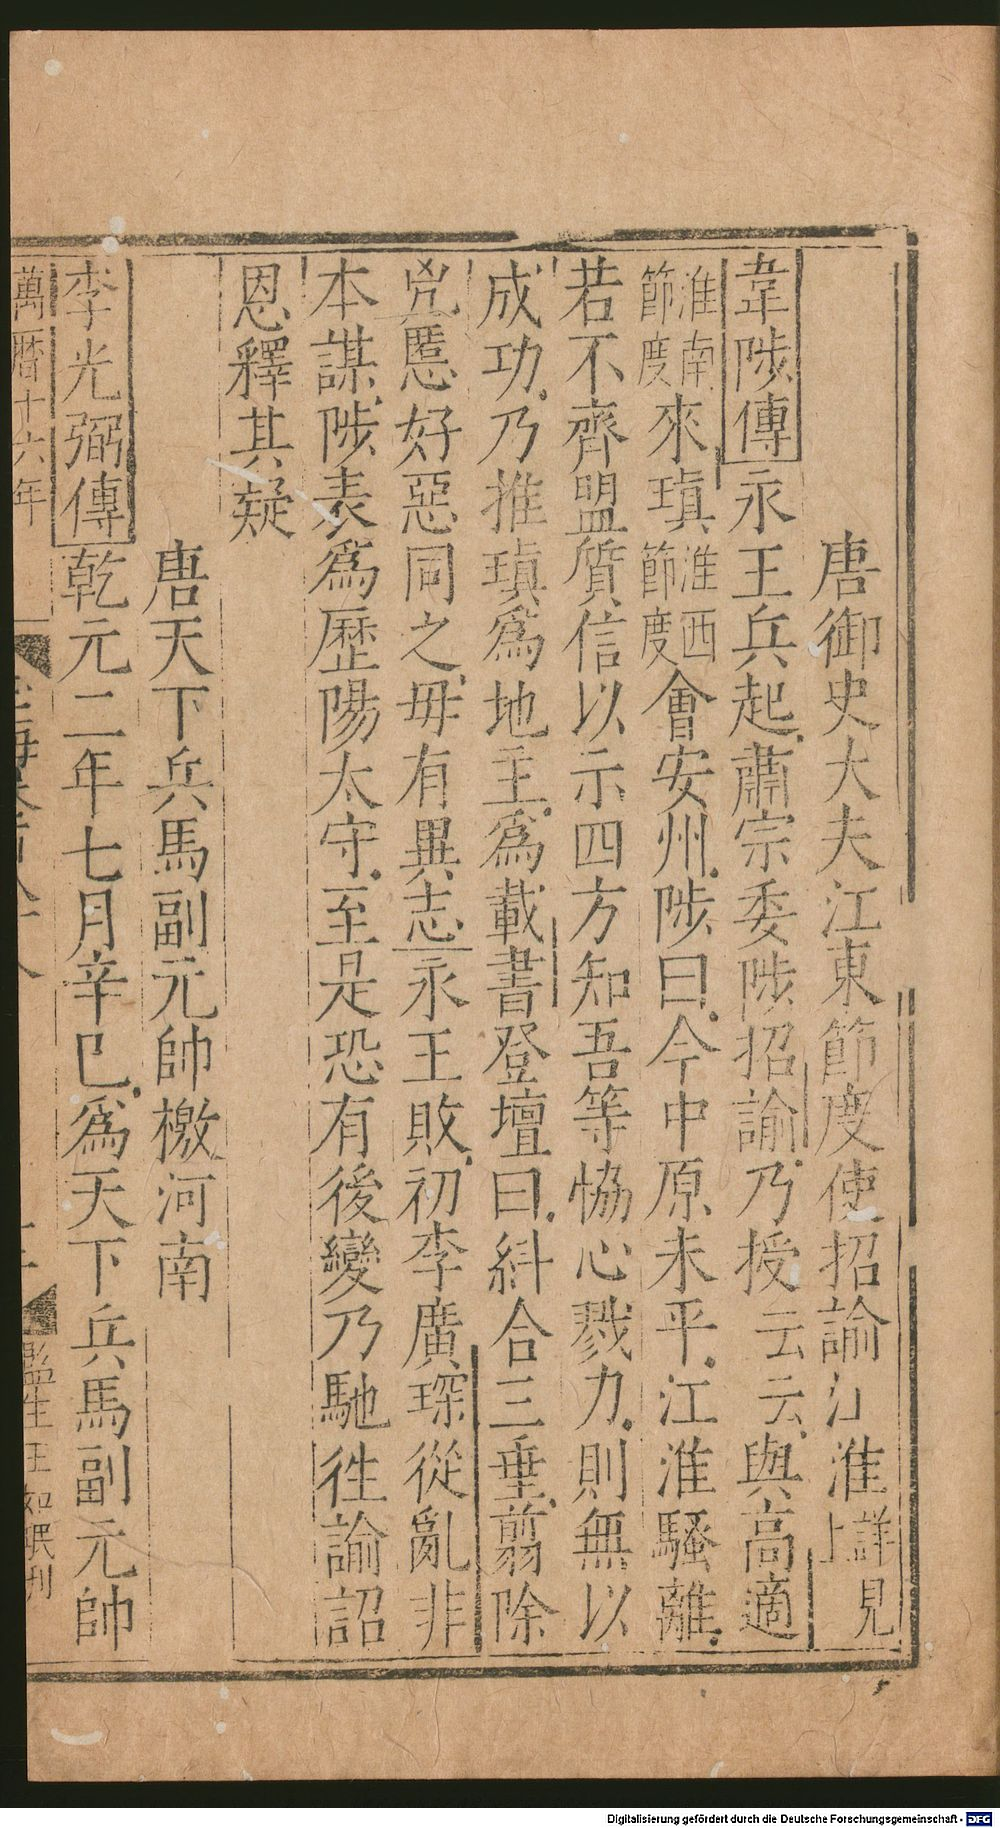 唐御史大夫江東節度使招諭江淮詳見上
韋陟傳永王兵起肅宗委陟招諭乃授云云與高適
淮南節度來瑱淮西節度會安州陟曰今中原未平江淮騷離
若不齊盟質信以示四方知吾等恊心戮力則無以
成功乃推瑱爲地主爲載書登壇曰糾合三垂翦除
兇慝好惡同之毋有異志永王敗初李廣琛從亂非
本謀陟表爲歷陽太守至是恐有後變乃馳徃諭詔
恩釋其疑
唐天下兵馬副元帥檄河南
李光弼傳乾元二年七月辛巳爲天下兵馬副元帥
萬曆十六年
監生王如珉刊
Digitalisierung gefördert durch die Deutsche Forschungsgemeinschaft - DFG